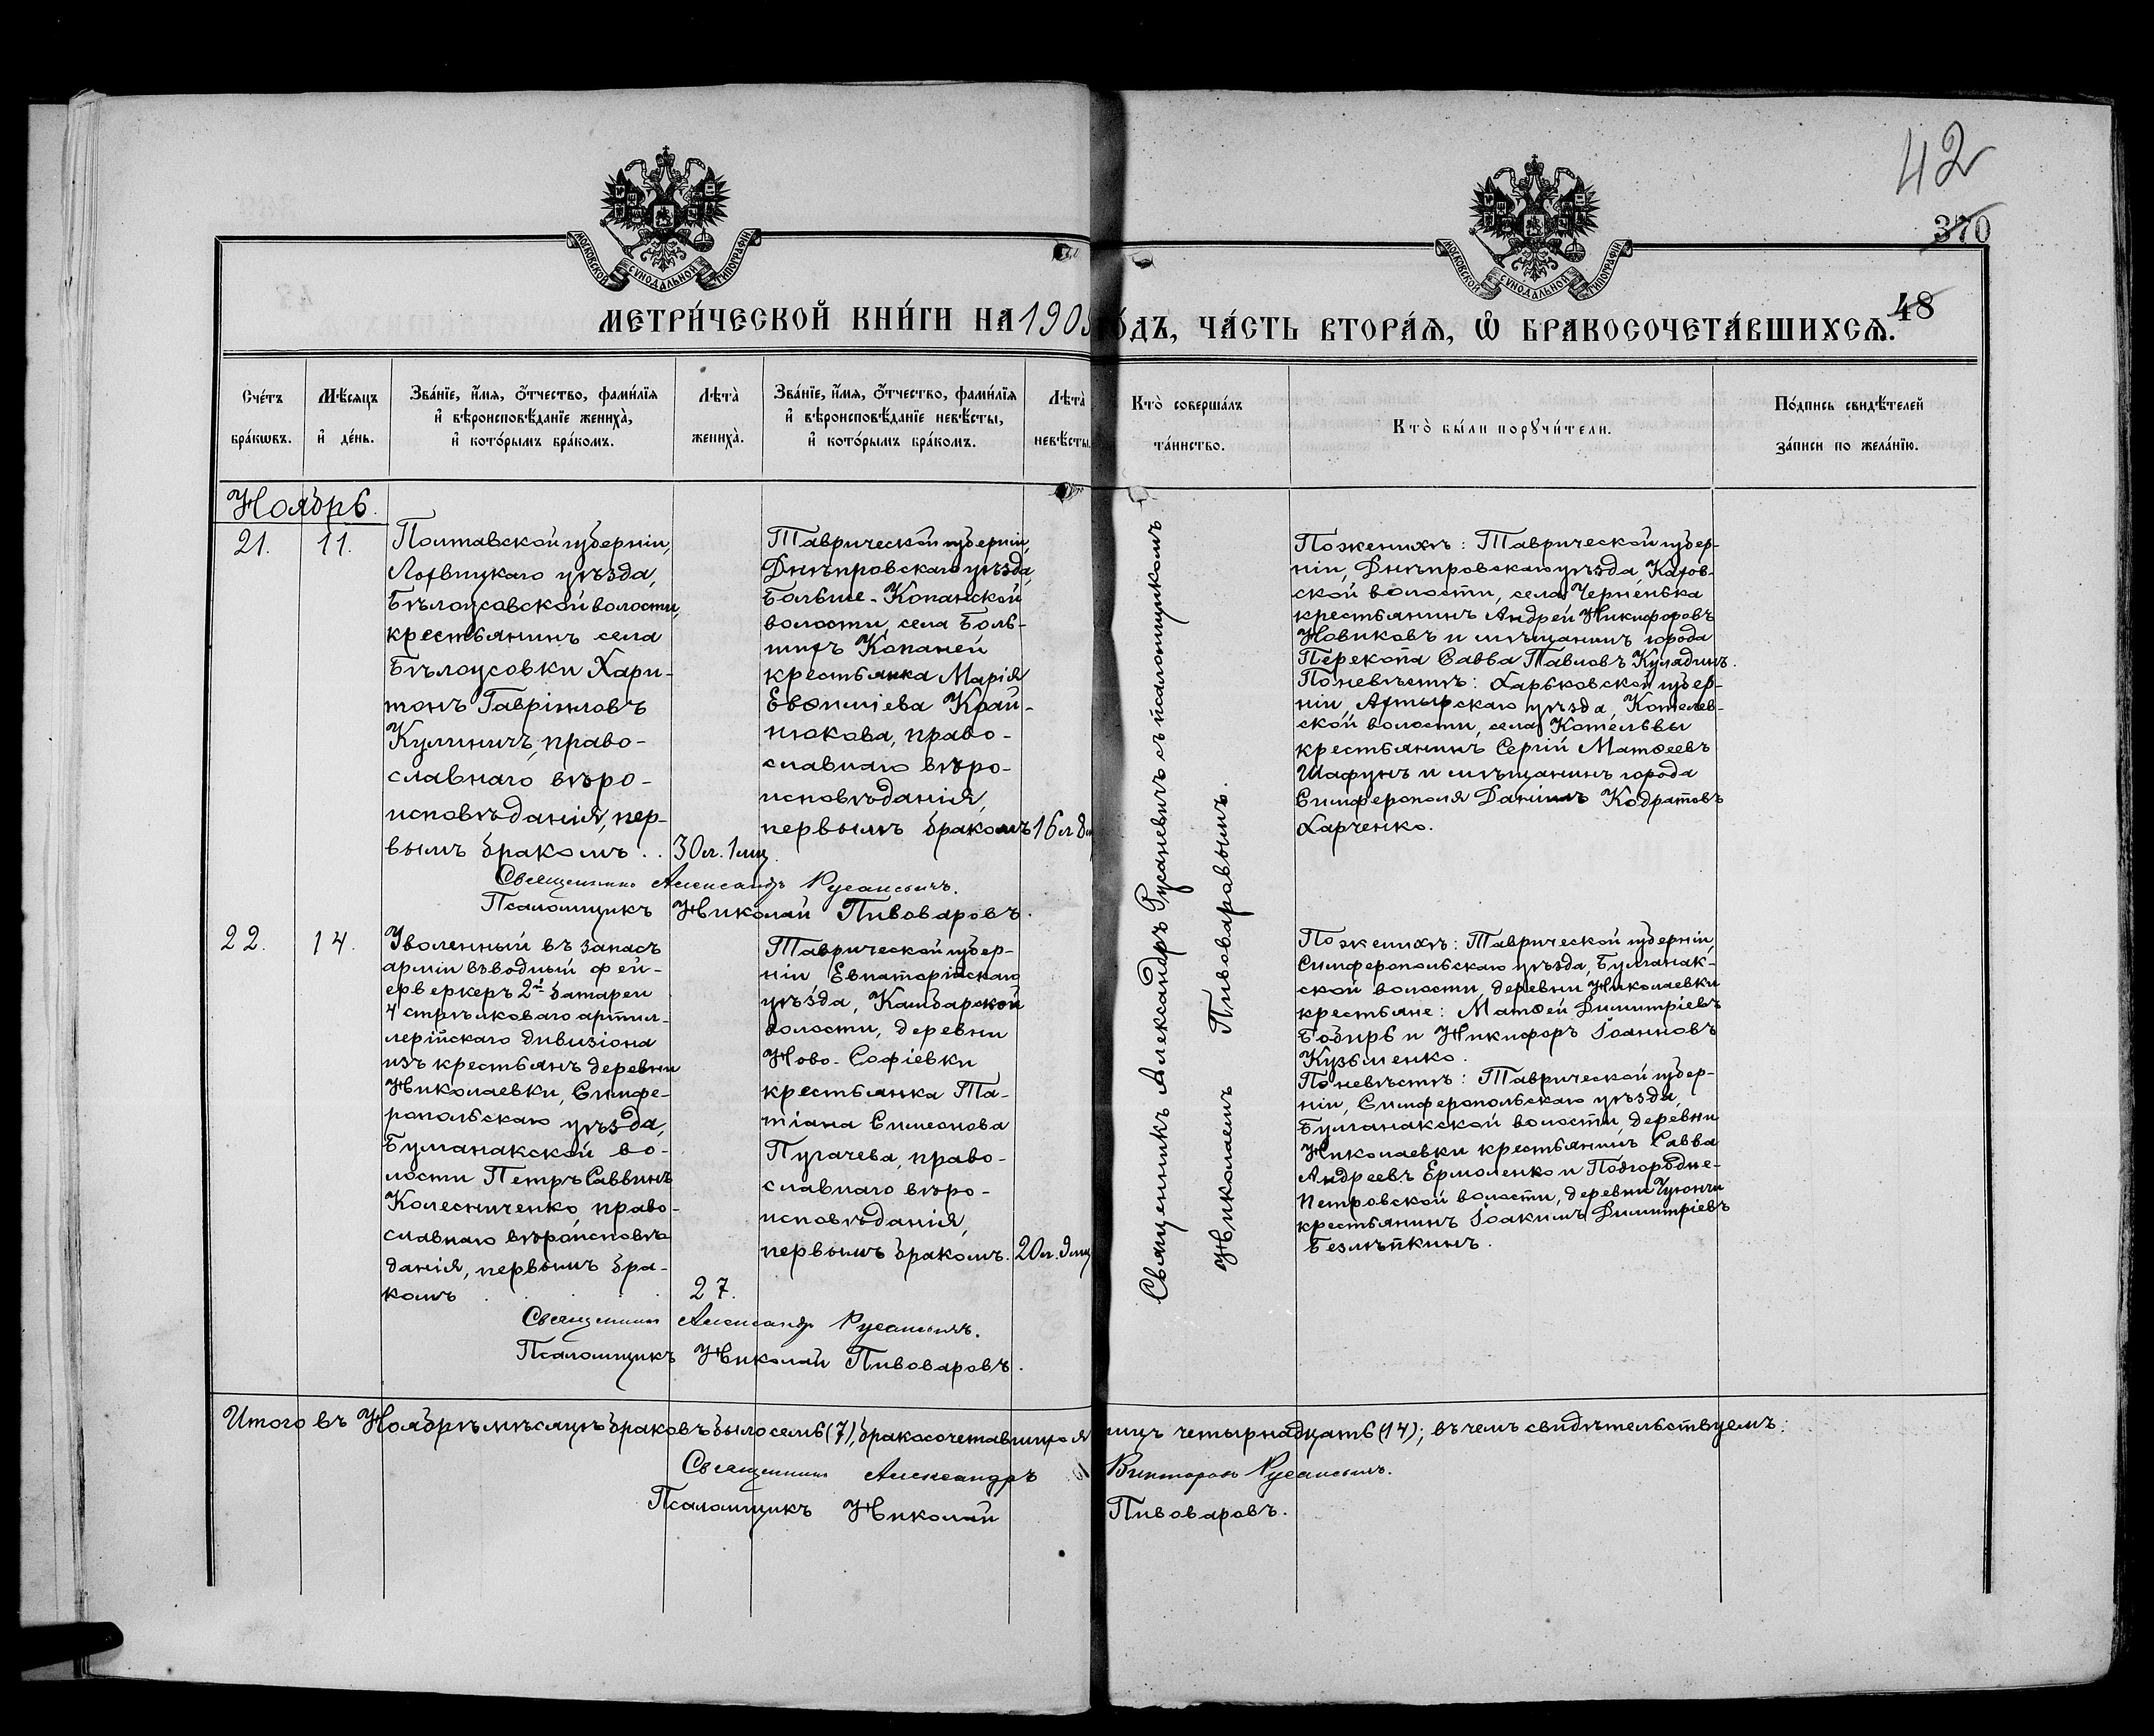 42
370
МОСКОВСКОЙ СѴНОДАЛЬНОЙ ТИПОГРАФІИ
МОСКОВСКОЙ СѴНОДАЛЬНОЙ ТИПОГРАФІИ
48
МЕТРИ́ЧЕСКОЙ КНИ́ГИ НА 190
О́ДЪ, ЧА́СТЬ ВТОРА́Ѧ, Ѽ БРАКОСОЧЕТА́ВШИХСѦ.
Сче́тъ
бра́кѡвъ.
Мѣ́сяцъ
и҆ де́нь.
Зва́нїе, и҆́мя, ѻ҆́тчество, фами́лїя
и҆ вѣроисповѣ́данїе жениха̀,
и҆ кото́рымъ бра́комъ.
Лѣта̀
жениха̀.
Зва́нїе, и҆́мя, ѻ҆́тчество, фами́лїя
и҆ вѣроисповѣ́данїе невѣ́сты,
и҆ кото́рымъ бра́комъ.
Лѣта̀
невѣ́сты.
Кто̀ соверша́лъ
та́инство.
Кто̀ бы́ли порꙋчи́тели.
По́дпись свидѣ́телей
за́писи по жела́нїю.
Ноябрь.
21.
11.
Полтавской губерніи,
Лохвицкаго уѣзда,
Бѣлоусовской волости,
крестьянинъ села
Бѣлоусовки Хари-
тонъ Гавріиловъ
Кулиничъ, право-
славнаго вѣро-
исповѣданія, пер-
вымъ бракомъ . .
30 л. 1 мц.
Таврической губерніи,
Днѣпровскаго уѣзда,
Больше-Копанской
волости, села Боль-
шихъ Копаней
крестьянка Марія
Евѳиміева Край-
нюкова, право-
славнаго вѣро-
исповѣданія,
первымъ бракомъ
16 л.
Священникъ Александръ Русаневичъ съ псаломщикомъ
Николаемъ Пивоваровымъ.
По женихѣ: Таврической губер-
ніи, Днѣпровскаго уѣзда, Кахов-
ской волости, села Черненька
крестьянинъ Андрей Никифоровъ
Новиковъ и мѣщанинъ города
Перекопа Савва Павловъ Кулядинъ.
По невѣстѣ: Харьковской губер-
ніи, Ахтырскаго уѣзда, Котелев-
ской волости, села Котельвы
крестьянинъ Сергій Матѳеевъ
Шафунъ и мѣщанинъ города
Симферополя Даніилъ Кодратовъ
Харченко.
Священникъ Александръ Русаневичъ.
Псаломщикъ Николай Пивоваровъ.
22.
14.
Уволенный въ запасъ
арміи взводный фей-
ерверкеръ 2й батареи
4 стрѣлковаго артил-
лерійскаго дивизіона
изъ крестьянъ деревни
Николаевки, Симфе-
ропольскаго уѣзда,
Булганакской во-
лости Петръ Саввинъ
Колесниченко, право-
славнаго вѣроисповѣ-
данія, первымъ бра-
комъ
27.
Таврической губер-
ніи Евпаторійскаго
уѣзда, Камбарской
волости, деревни
Ново-Софіевки
крестьянка Та-
тіана Симеонова
Пугачева, право-
славнаго вѣро-
исповѣданія,
первымъ бракомъ.
20 л. 9 мц
По женихѣ: Таврической губерніи,
Симферопольскаго уѣзда, Булганак-
ской волости, деревни Николаевки
крестьяне: Матѳей Димитріевъ
Бобирь и Никифоръ Іоанновъ
Кузьменко.
По невѣстѣ: Таврической губер-
ніи, Симферопольскаго уѣзда,
Булганакской волости, деревни
Николаевки крестьянинъ Савва
Андреевъ Ермоленко и Подгородне-
Петровской волости, деревни
крестьянинъ Іоакимъ Димитріевъ
Безмѣткинъ.
Священникъ Александръ Русаневичъ.
Псаломщикъ Николай Пивоваровъ.
Итого въ Ноябрѣ мѣсяцѣ браковъ было семь (7), бракосочетавшихся лицъ четырнадцать (14); въ чемъ свидѣтельствуемъ:
Священникъ Александръ Викторовъ Русаневичъ.
Псаломщикъ Николай Пивоваровъ.